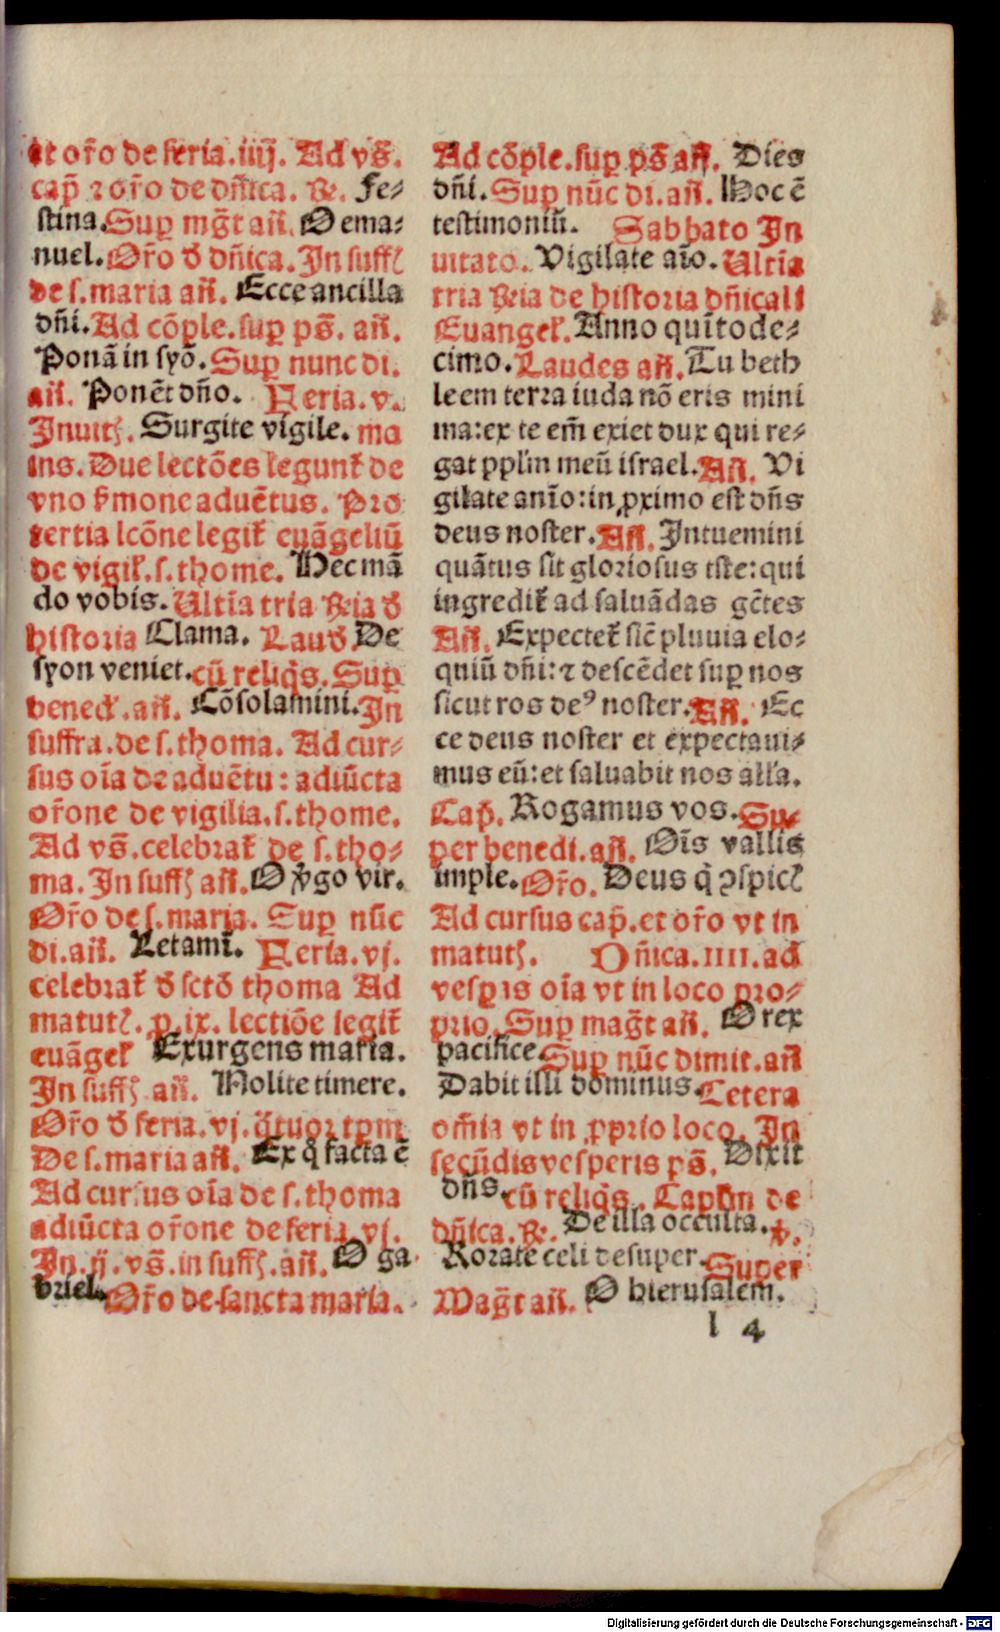 et or̄o de feria.iiij. Ad vs̄.
cap̄ ⁊ or̄o de dn̄ica. ꝟ. Fe-
stina. Sup mḡt an̄. O ema-
nuel. Or̄o ꝺ dn̄ica. In suff
de s.maria an̄. Ecce ancilla
dn̄i. Ad cōple. sup ps̄. an̄.
Ponā in syō. Sup nunc di.
an̄. Ponēt dn̄o. Feria.v.
Inuit. Surgite vigile. ma
ins. Due lectōes legunt̄ de
vno s̄mone aduētus. Pro
tertia lcōne legit̄ euāgeliū
de vigil̄.s.thome. Hec mā
do vobis. Ultīa tria ꝟia ꝺ
historia Clama. Laudꝭ De
syon veniet. cū reliq̄s. Sup
bened̄. an̄. Cōsolamini. In
suffra. de s.thoma. Ad cur-
sus oīa de aduētu: adiūcta
or̄one de vigilia.s.thome.
Ad vs̄. celebrat̄ de s.tho-
ma. In suff an̄. O v̄go vir.
Or̄o de s.maria. Sup nūc
di. an̄. Letamī. Feria.vj.
celebrat̄ ꝺ sctō thoma Ad
matut. p. ix. lectiōe legit̄
euāgel̄ Exurgens maria.
In suff an̄. Nolite timere.
Or̄o ꝺ feria. vj. q̄tuor tpm
De s.maria an̄. Ex q̊ facta ē
Ad cursus oīa de s.thoma
adiūcta or̄one de feria vj.
In.ij.vs̄. in suff. an̄. O ga
briel. Or̄o de sancta maria.
Ad cōple. sup ps̄ an̄. Dies
dn̄i. Sup nūc di. an̄. Hoc ē
testimoniū. Sabbato In
uitato. Vigilate aīo. Ultīa
tria ꝟia de historia dn̄icali
Euangel̄. Anno quītode-
cimo. Laudes an̄. Tu beth
leem terra iuda nō eris mini
ma: ex te em̄ exiet dux qui re-
gat pplm̄ meū israel. An̄. Vi
gilate anīo: in ꝓximo est dn̄s
deus noster. An̄. Intuemini
quātus sit gloriosus iste: qui
ingredit̄ ad saluādas gētes
An̄. Expectet̄ sic̄ pluuia elo-
quiū dn̄i: ⁊ descēdet sup nos
sicut ros deꝰ noster. An̄. Ec
ce deus noster et expectaui-
mus eū: et saluabit nos all'a.
Cap̄. Rogamus vos. Su-
per benedi. an̄. Oīs vallis
imple. Or̄o. Deus q̄ ꝯspic
Ad cursus cap̄. et or̄o vt in
matut. Dn̄ica.IIII. ad
vesperis oīa vt in loco pro-
prio. Sup maḡt an̄. O rex
pacifice. Sup nūc dimit. an̄
Dabit illi dominus. Cetera
om̄ia vt in ꝓprio loco. In
secūdis vesperis ps̄. Dixit
dn̄s. cū reliq̄s. Capl̄m de
dn̄ica. ꝟ. De illa occulta. ꝟ.
Rorate celi desuper. Super
Maḡt an̄. O hierusalem.
l 4
Digitalisierung gefördert durch die Deutsche Forschungsgemeinschaft - DFG